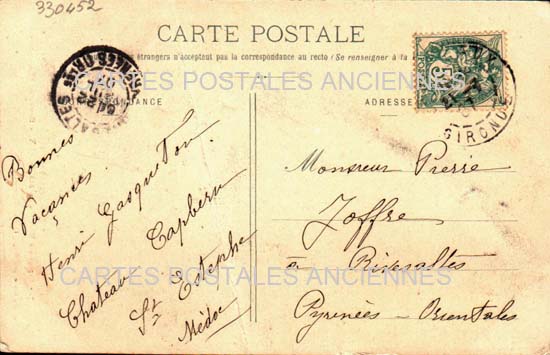 330452
CARTE POSTALE
étrangers n'acceptent pas la correspondance au recto (Se renseigner à la
CARTES POSTALES ANCIENNES
ADRESSE
GIRONDE
5
Bonnes
Vacances
Henri Gasqueton
Chateau Capbern
St Estephe
Médoc
Monsieur Pierre
Joffre
à Rivesaltes
Pyrénées - Orientales
CARTES POSTALES ANCIENNES